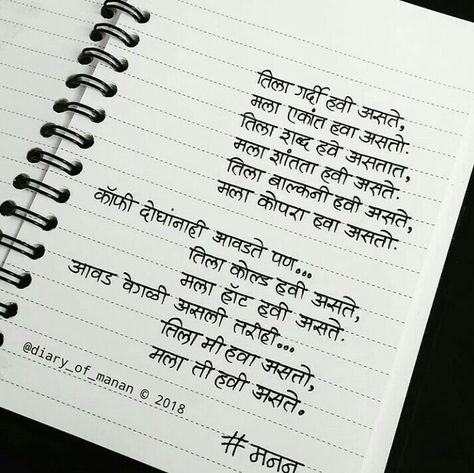 तिला गर्दी हवी असते,
मला एकांत हवा असतो.
तिला शब्द हवे असतात,
मला शांतता हवी असते.
तिला बाल्कनी हवी असते,
मला कोपरा हवा असतो.
कॉफी दोघांनाही आवडते पण...
तिला कोल्ड हवी असते,
मला हॉट हवी असते.
आवड वेगळी असली तरीही...
तिला मी हवा असतो,
मला ती हवी असते.
@diary_of_manan © 2018
#मनन